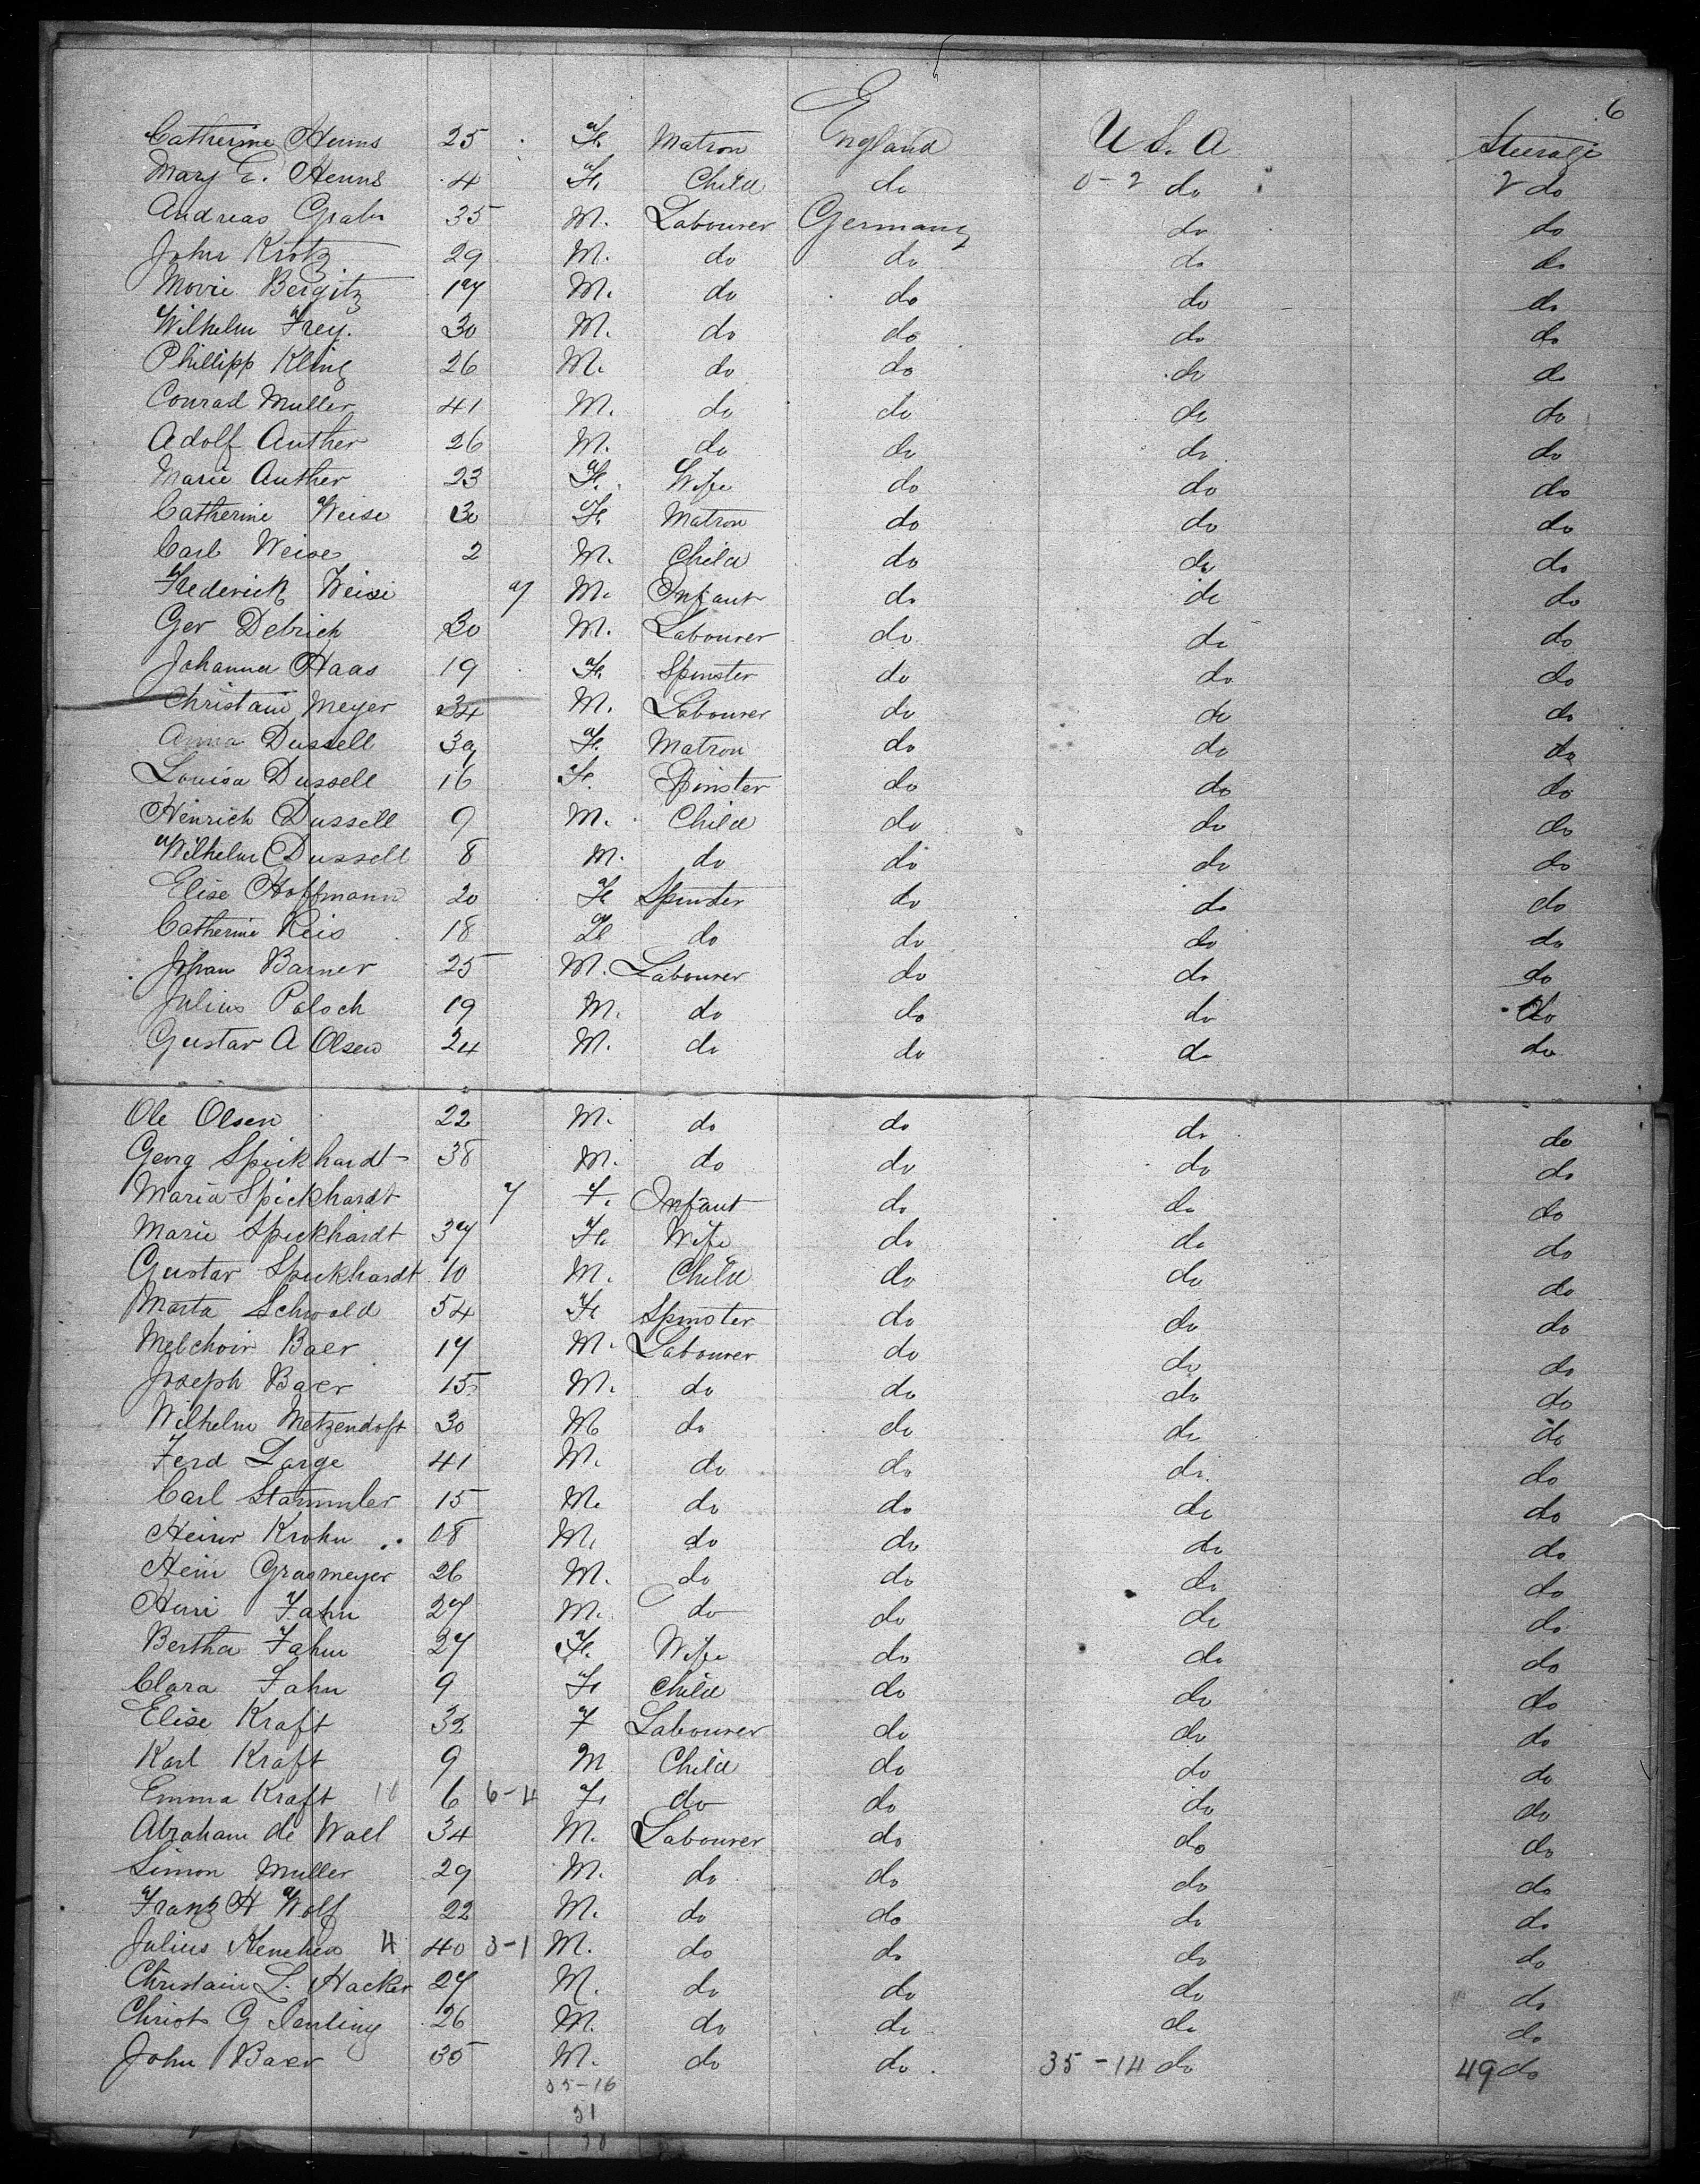 6
Catherine Henns 25 F. Matron England U.S.A. Steerage
Mary E. Henns 4 F. Child do 0-2 do 2 do
Andreas Grahn 35 M. Labourer Germany do do
John Krotz 29 M. do do do do
Movie Bergitz 17 M. do do do do
Wilhelm Frey. 30 M. do do do do
Phillipp Kling 26 M. do do do do
Conrad Muller 41 M. do do do do
Adolf Auther 26 M. do do do do
Marie Auther 23 F. Wife do do do
Catherine Weise 30 F. Matron do do do
Carl Weise 2 M. Child do do do
Frederick Weise 7 M. Infant do do do
Ger Debrich 30 M. Labourer do do do
Johanna Haas 19 F. Spinster do do do
Christain Meyer 34 M. Labourer do do do
Anna Dussell 39 F. Matron do do do
Louisa Dussell 16 F. Spinster do do do
Heinrich Dussell 9 M. Child do do do
Wilhelm Dussell 8 M. do do do do
Elise Hoffmann 20 F Spinster do do do
Catherine Reis 18 F do do do do
Johan Barner 25 M. Labourer do do do
Julius Paloch 19 M. do do do do
Gustav A Olsen 24 M. do do do do
Ole Olsen 22 M. do do do do
Georg Spickhardt 38 M. do do do do
Maria Spickhardt 7 F. Infant do do do
Marie Spickhardt 37 F. Wife do do do
Gustav Spickhardt 10 M. Child do do do
Marta Schwald 54 F Spinster do do do
Melchoir Baer 17 M. Labourer do do do
Joseph Baer 15 M. do do do do
Wilhelm Metzendoft 30 M do do do do
Ferd Large 41 M. do do do do
Carl Stammler 15 M. do do do do
Heinr Krohn 18 M. do do do do
Hein Grasmeyer 26 M. do do do do
Henri Fahn 27 M. do do do do
Bertha Fahn 37 F. Wife do do do
Clara Fahn 9 F. Child do do do
Elise Kraft 32 F Labourer do do do
Karl Kraft 9 M Child do do do
Emma Kraft 10 6 6-4 F. do do do do
Abraham de Wall 34 M. Labourer do do do
Simon Muller 29 M. do do do do
Franz H Wolf 22 M. do do do do
Julius 4 40 3-1 M. do do do do
Christain L. Hacker 27 M. do do do do
Christ G 26 M. do do do do
John Baer 35 M. do do 35-14 do 49 do
35-16
51